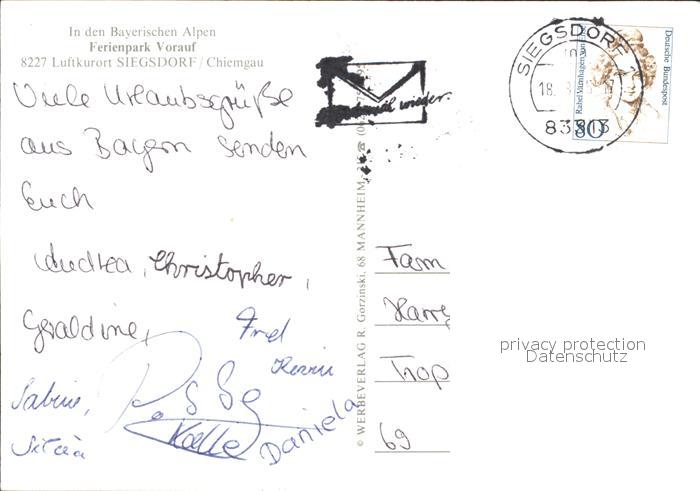 In den Bayerischen Alpen
Ferienpark Vorauf
8227 Luftkurort SIEGSDORF / Chiemgau
Viele Urlaubsgrüße
aus Bayern senden
Euch
Andrea, Christopher,
Geraldine,
Fred
Kevin
Sabine,
Kalle
Daniela
© WERBEVERLAG R. Gorzinski, 68 MANNHEIM
mal wieder.
SIEGSDORF
18.
83313
Deutsche Bundespost
Rahel Varnhagen von Ense
80
Fam
Harr
Trop
69
privacy protection
Datenschutz